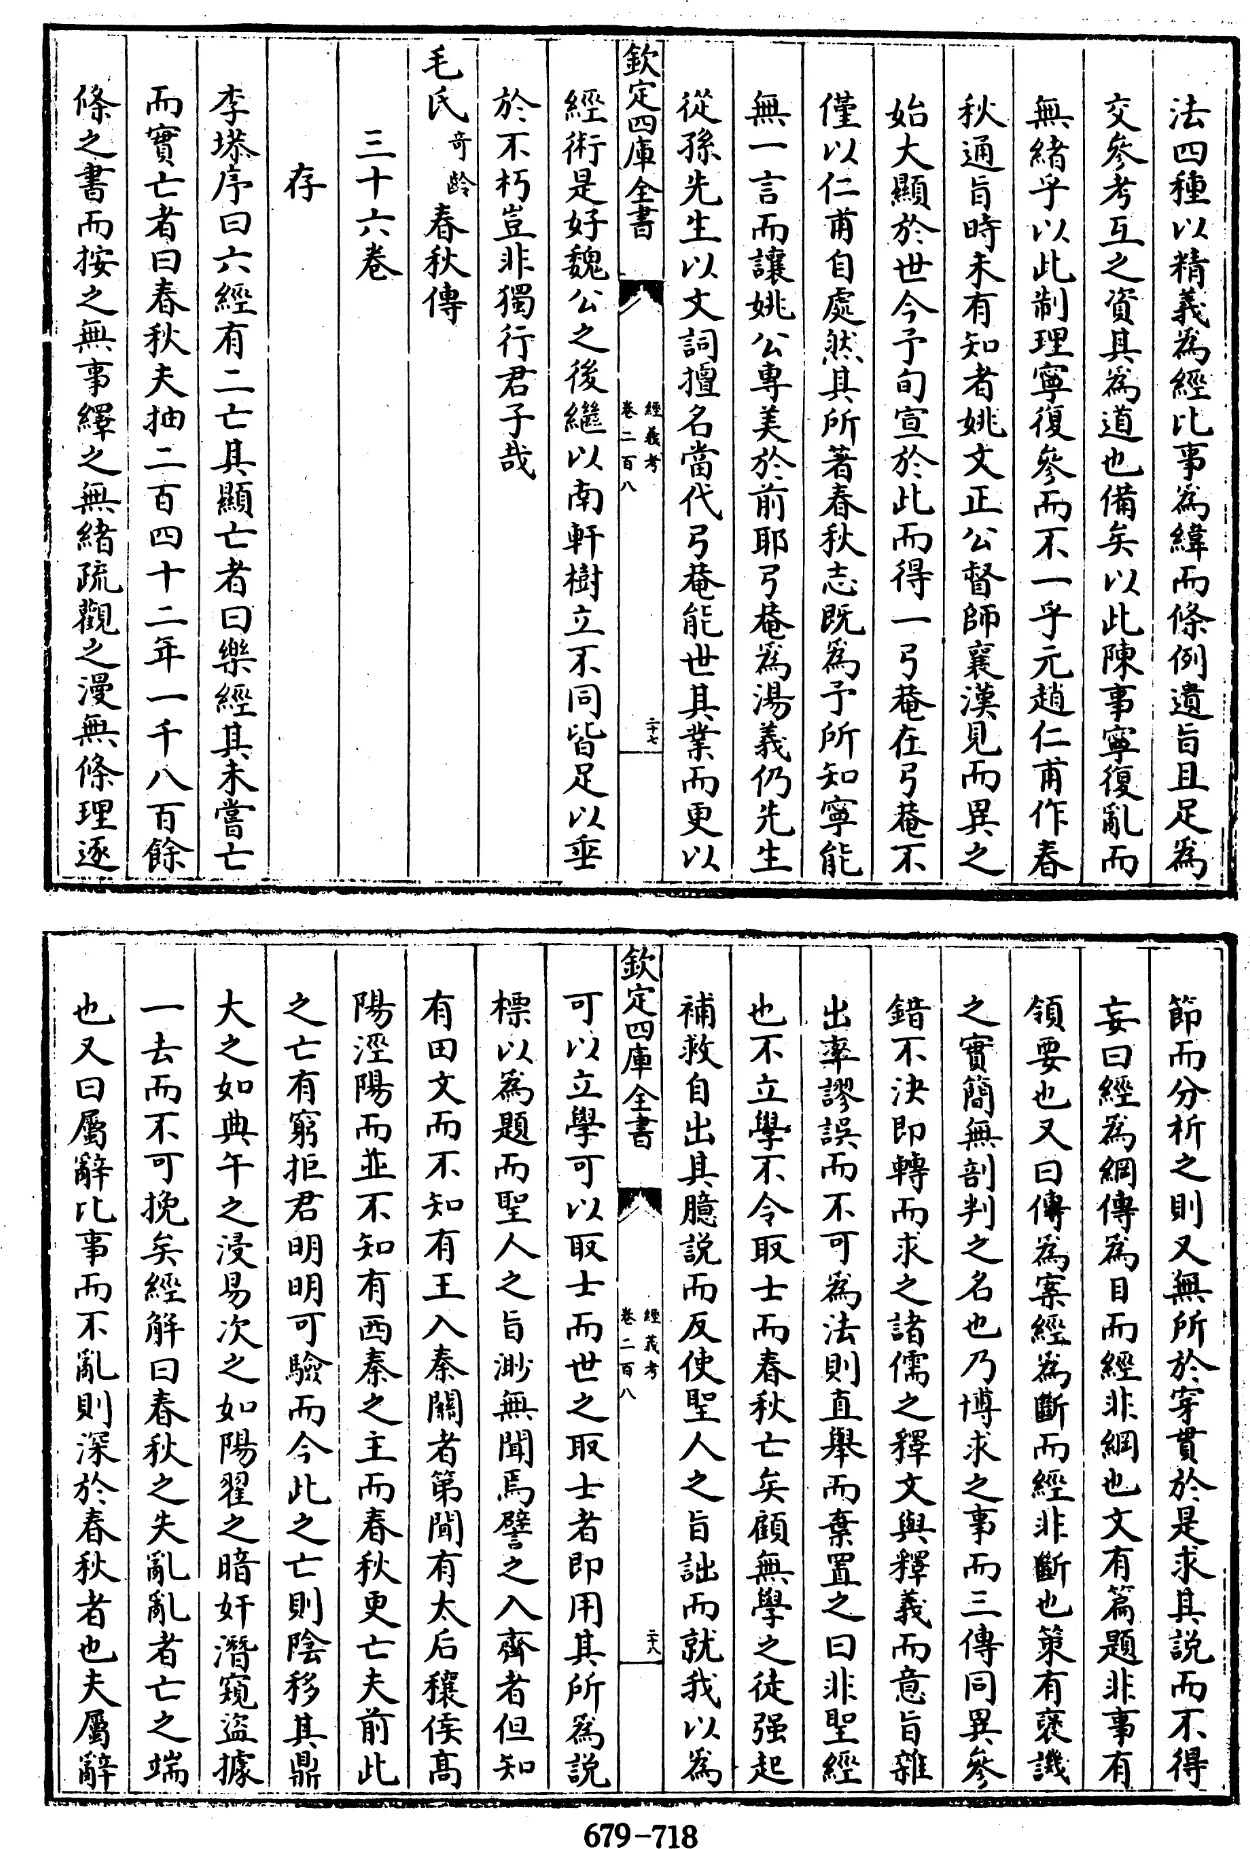 法四種以精義爲經比事爲緯而條例遺旨且足爲
交參考互之資其爲道也備矣以此陳事寧復亂而
無緒乎以此制理寧復參而不一乎元趙仁甫作春
秋通旨時未有知者姚文正公督師襄漢見而異之
始大顯於世今予旬宣於此而得一弓菴在弓菴不
僅以仁甫自處然其所著春秋志既爲予所知寧能
無一言而讓姚公專美於前耶弓菴爲湯義仍先生
從孫先生以文詞擅名當代弓菴能世其業而更以
欽定四庫全書
經義考
卷二百八
二十七
經術是好魏公之後繼以南軒樹立不同皆足以垂
於不朽豈非獨行君子哉
毛氏奇齡春秋傳
三十六卷
存
李塨序曰六經有二亡其顯亡者曰樂經其未嘗亡
而實亡者曰春秋夫抽二百四十二年一千八百餘
條之書而按之無事繹之無緒疏觀之漫無條理逐
節而分析之則又無所於穿貫於是求其説而不得
妄曰經爲綱傳爲目而經非綱也文有篇題非事有
領要也又曰傳爲案經爲斷而經非斷也策有褒譏
之實簡無剖判之名也乃博求之事而三傳同異參
錯不決即轉而求之諸儒之釋文與釋義而意旨雜
出率謬誤而不可爲法則直舉而棄置之曰非聖經
也不立學不令取士而春秋亡矣顧無學之徒强起
補救自出其臆説而反使聖人之旨詘而就我以爲
欽定四庫全書
經義考
卷二百八
二十八
可以立學可以取士而世之取士者即用其所爲説
標以爲題而聖人之旨渺無聞焉譬之入齊者但知
有田文而不知有王入秦關者第聞有太后穰侯高
陽涇陽而並不知有西秦之主而春秋更亡夫前此
之亡有窮拒君明明可驗而今此之亡則陰移其鼎
大之如典午之浸易次之如陽翟之暗奸潛窺盜據
一去而不可挽矣經解曰春秋之失亂亂者亡之端
也又曰屬辭比事而不亂則深於春秋者也夫屬辭
679-718